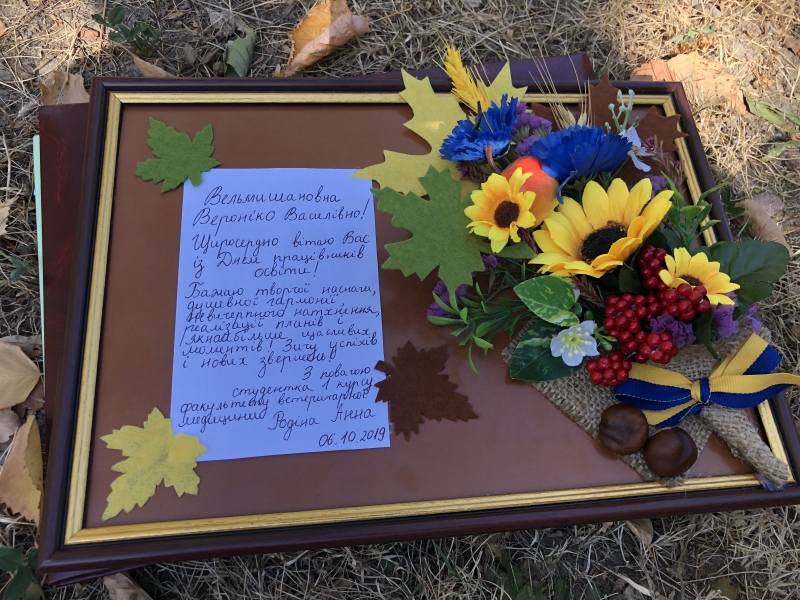 Вельмишановна
Вероніко Василівно!
Щиросердно вітаю Вас
із Днем працівників
освіти!
Бажаю творчої наснаги,
душевної гармонії,
невичерпного натхнення,
реалізації планів і
якнайбільше щасливих
моментів! Зичу успіхів
і нових звершень!
З повагою
студентка 1 курсу
факультету ветеринарної
медицини Родіна Анна
06.10.2019